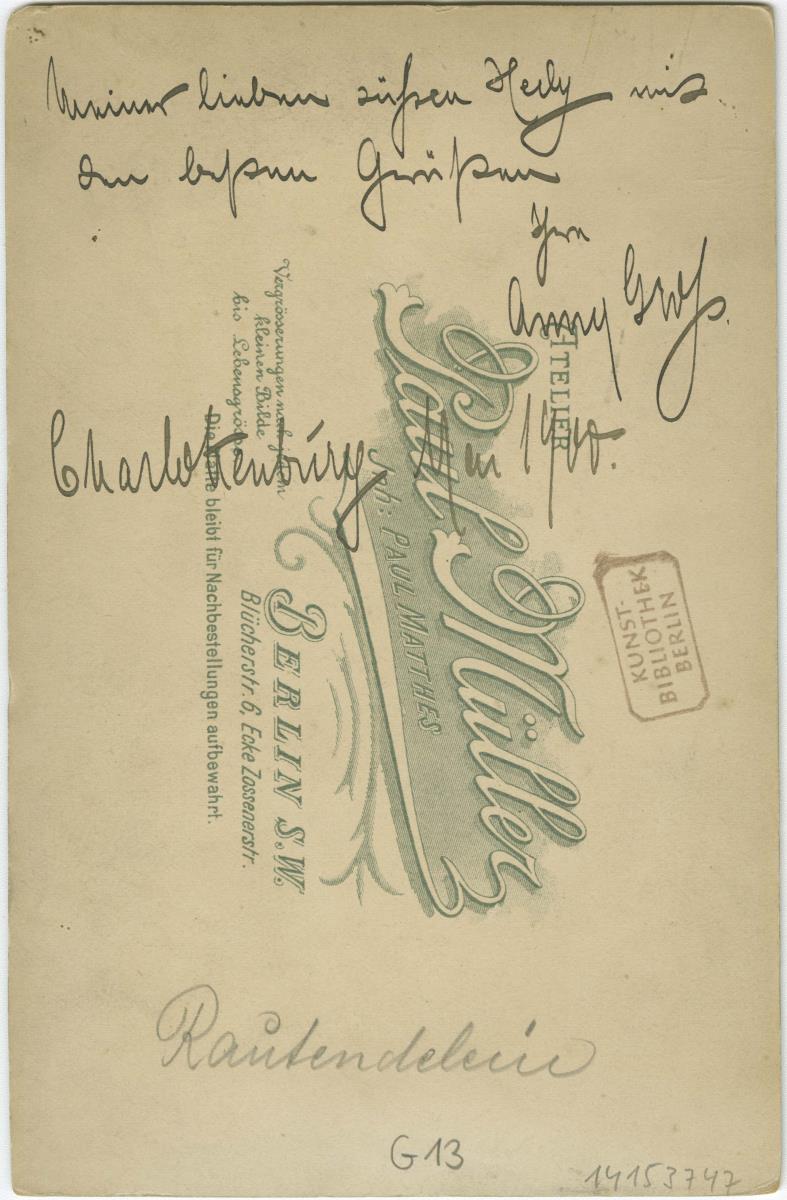 Meiner lieben süßen Hedy mit
den besten Grüßen
Ihre
Anny Groß.
Charlottenburg, im 1900.
ATELIER
Paul Müller
Inh: PAUL MATTHES
BERLIN S.W.
Blücherstr. 6, Ecke Zossenerstr.
Vergrösserungen nach jedem
kleinen Bilde
bis Lebensgrösse
Die Platte bleibt für Nachbestellungen aufbewahrt.
KUNST-
BIBLIOTHEK
BERLIN
Rautendelein
G 13
14153747